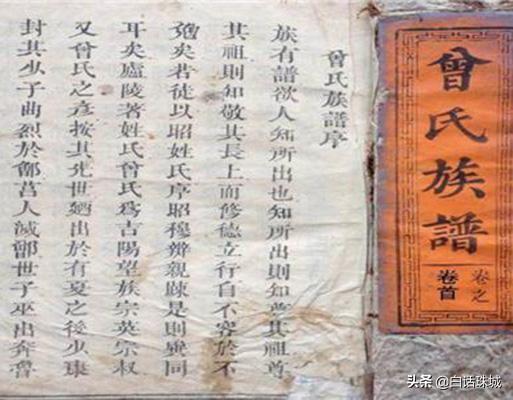 曾氏族譜
卷之
卷首
曾氏族譜序
族有譜欲人知所出也知所出則知尊其祖尊
其祖則知敬其長上而修德立行自不容於不
勉矣若徒以昭姓氏序昭穆辨親踈是則異同
耳矣廬陵著姓氏曾氏爲吉陽望族宗英宗叔
又曾氏之彥按其先世廼出於有夏之後少康
封其少子曲烈於鄫莒人滅鄫世子巫出奔魯
头条 @白话珠城